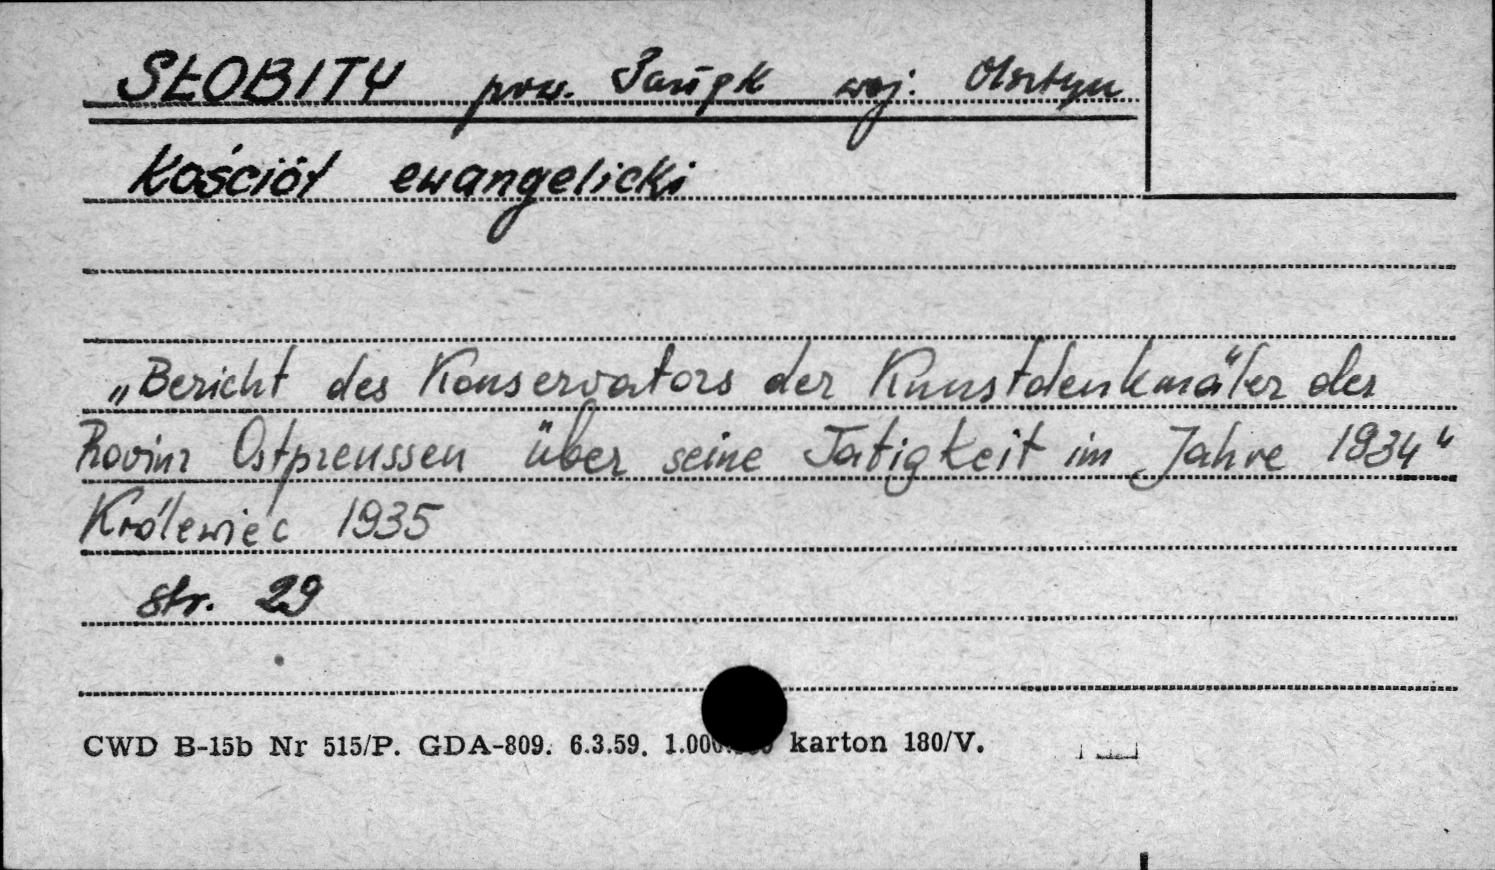 SŁOBITY pow. Pasłęk woj. Olsztyn
Kościół ewangelicki
„Bericht des Konservators der Kunstdenkmäler der
Provinz Ostpreussen über seine Tätigkeit im Jahre 1934"
Królewiec 1935
str. 29
CWD B-15b Nr 515/P. GDA-809. 6.3.59. karton 180/V.